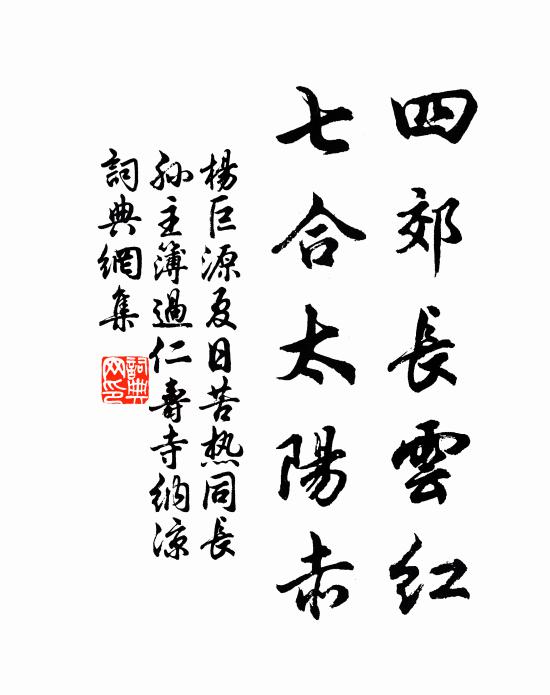 四郊長雲紅
七合太陽赤
楊巨源夏日苦热同長
孙主簿過仁壽寺納凉
詞典網集
詞典網印